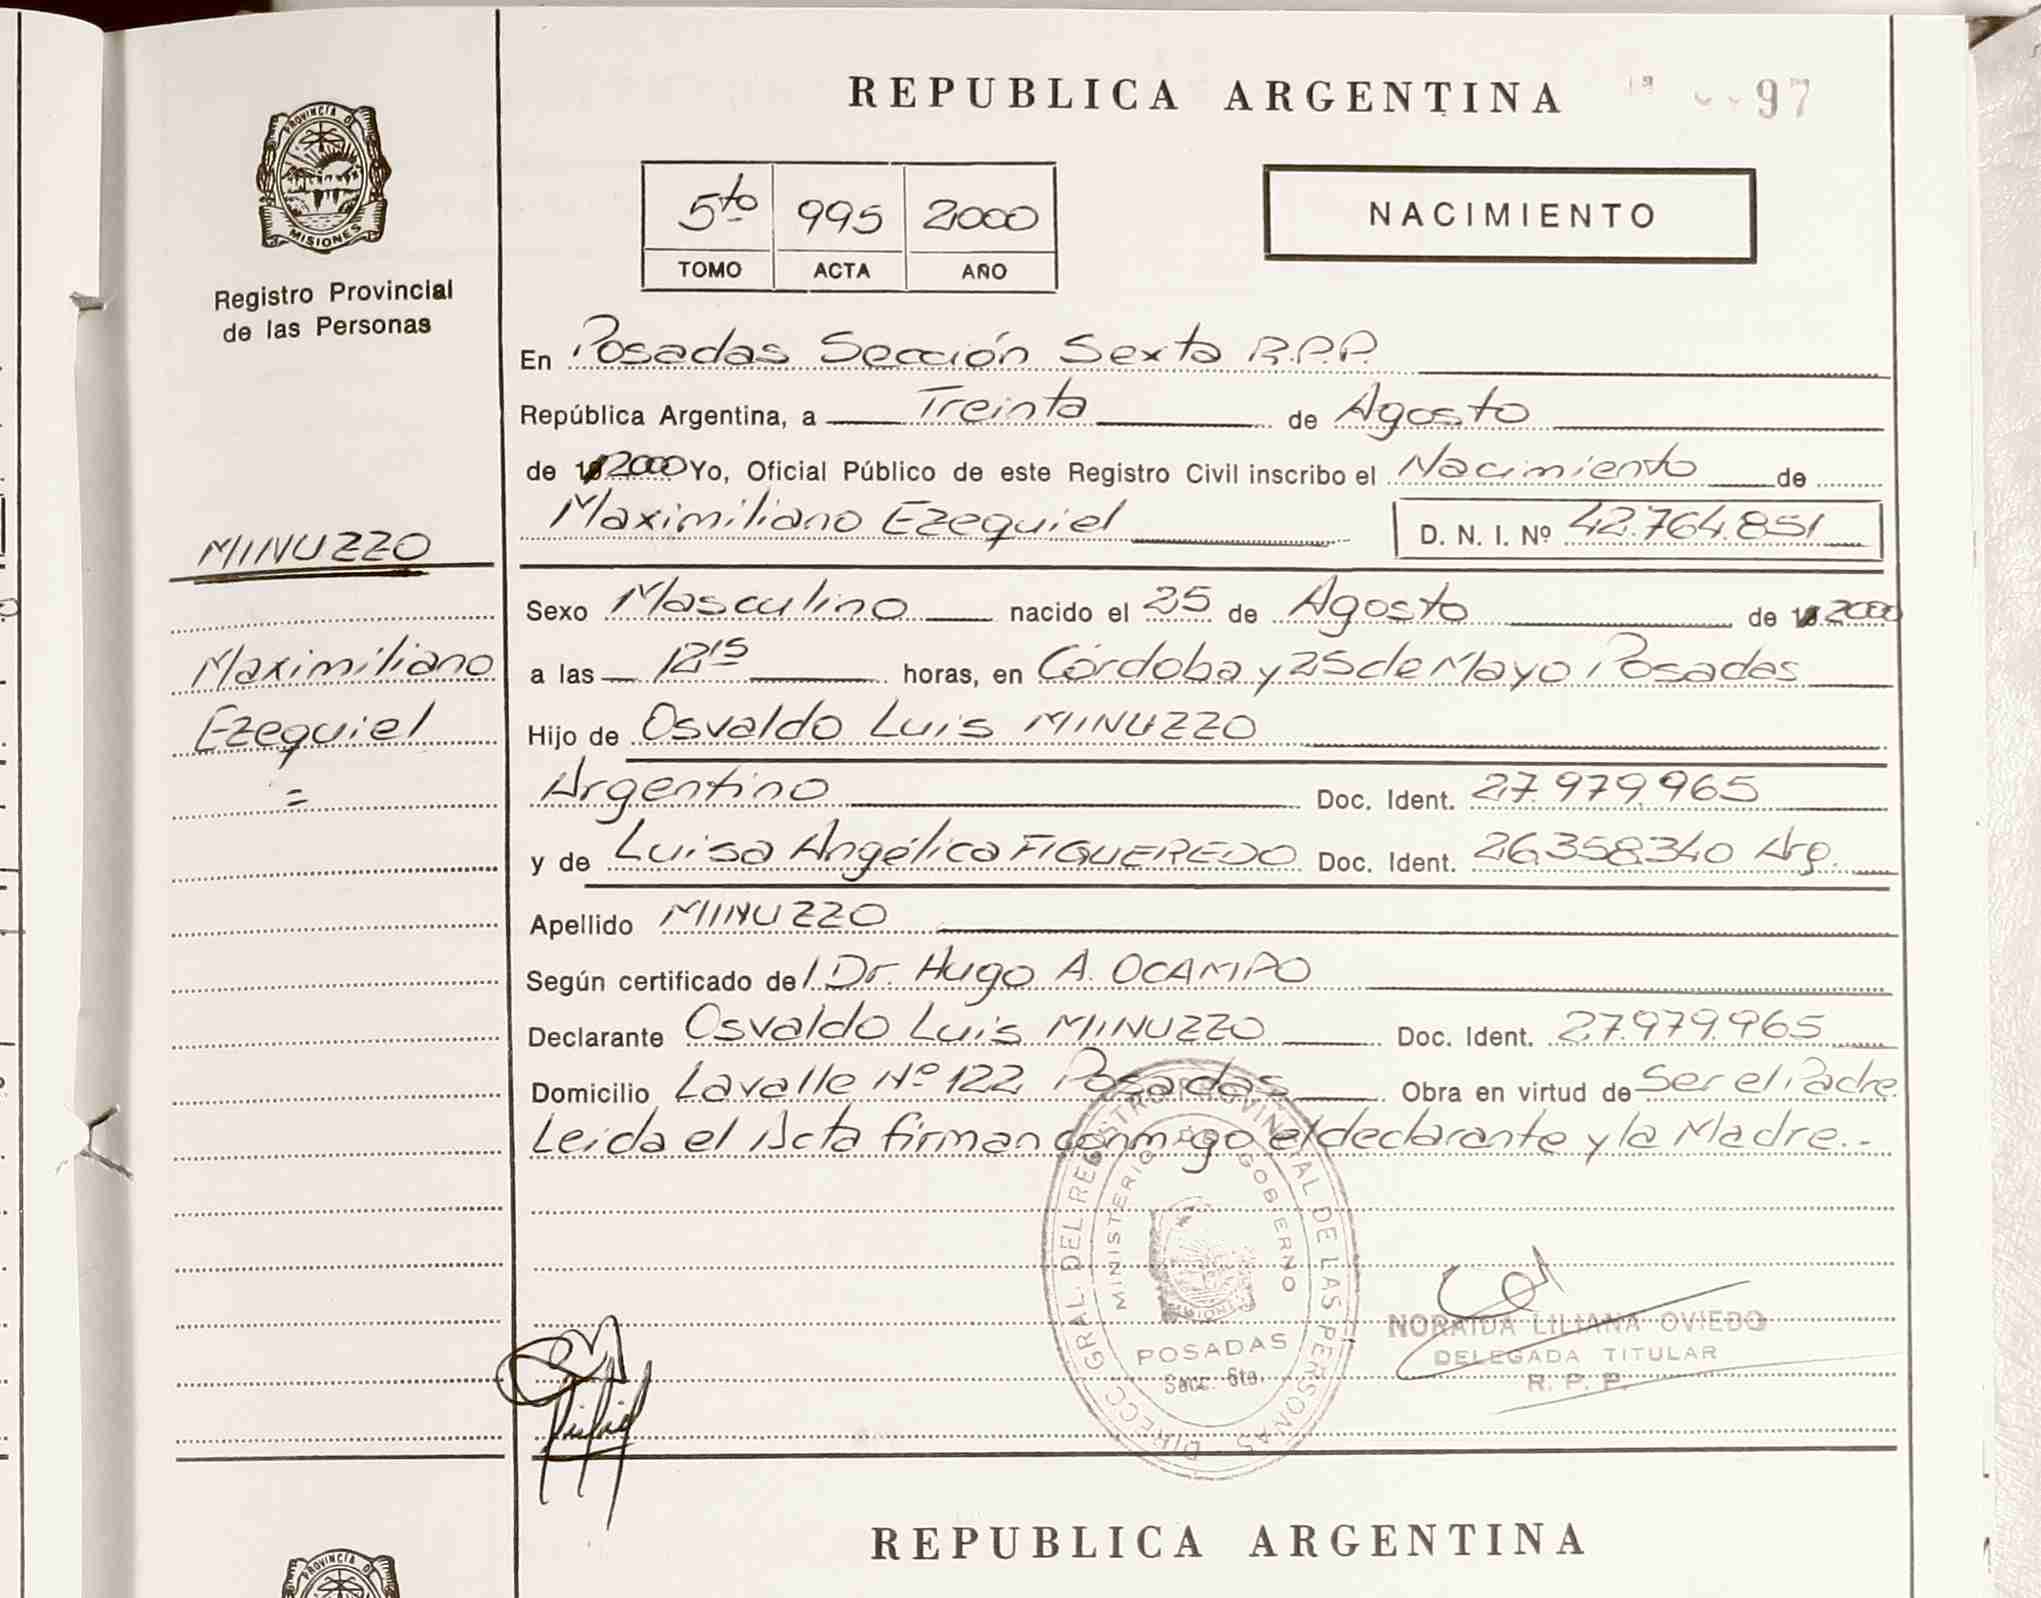 REPUBLICA ARGENTINA
97
PROVINCIA DE
MISIONES
Registro Provincial
de las Personas
5to 995 2000
TOMO ACTA AÑO
NACIMIENTO
En Posadas Sección Sexta R.P.P.
República Argentina, a Treinta de Agosto
de 2000 Yo, Oficial Público de este Registro Civil inscribo el Nacimiento de
Maximiliano Ezequiel D. N. I. Nº 42.764.851
MINUZZO
Sexo Masculino nacido el 25 de Agosto de 2000
Maximiliano
a las 12 15 horas, en Córdoba y 25 de Mayo Posadas
Ezequiel
Hijo de Osvaldo Luis MINUZZO
=
Argentino Doc. Ident. 27.979.965
y de Luisa Angélica FIGUEREDO Doc. Ident. 26.358.340 Arg.
Apellido MINUZZO
Según certificado del Dr. Hugo A. OCAMPO
Declarante Osvaldo Luis MINUZZO Doc. Ident. 27.979.965
Domicilio Lavalle Nº 122 Posadas Obra en virtud de Ser el Padre
Leída el Acta firman conmigo el declarante y la Madre.-
DIRECC. GRAL. DEL REGISTRO PROVINCIAL DE LAS PERSONAS
MINISTERIO DE GOBIERNO
MISIONES
POSADAS
Secc. 6ta.
NORAIDA LILIANA OVIEDO
DELEGADA TITULAR
R. P. P.
REPUBLICA ARGENTINA
PROVINCIA DE